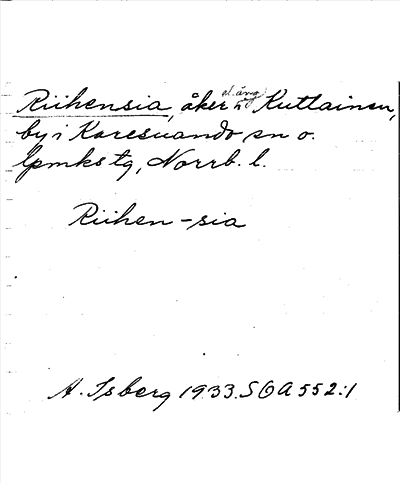 Riihensia, åker el. äng i Kuttainen,
by i Karesuando sn o.
lpmks tg, Norrb. l.
Riihen-sia
A. Isberg 1933. SOA 552:1